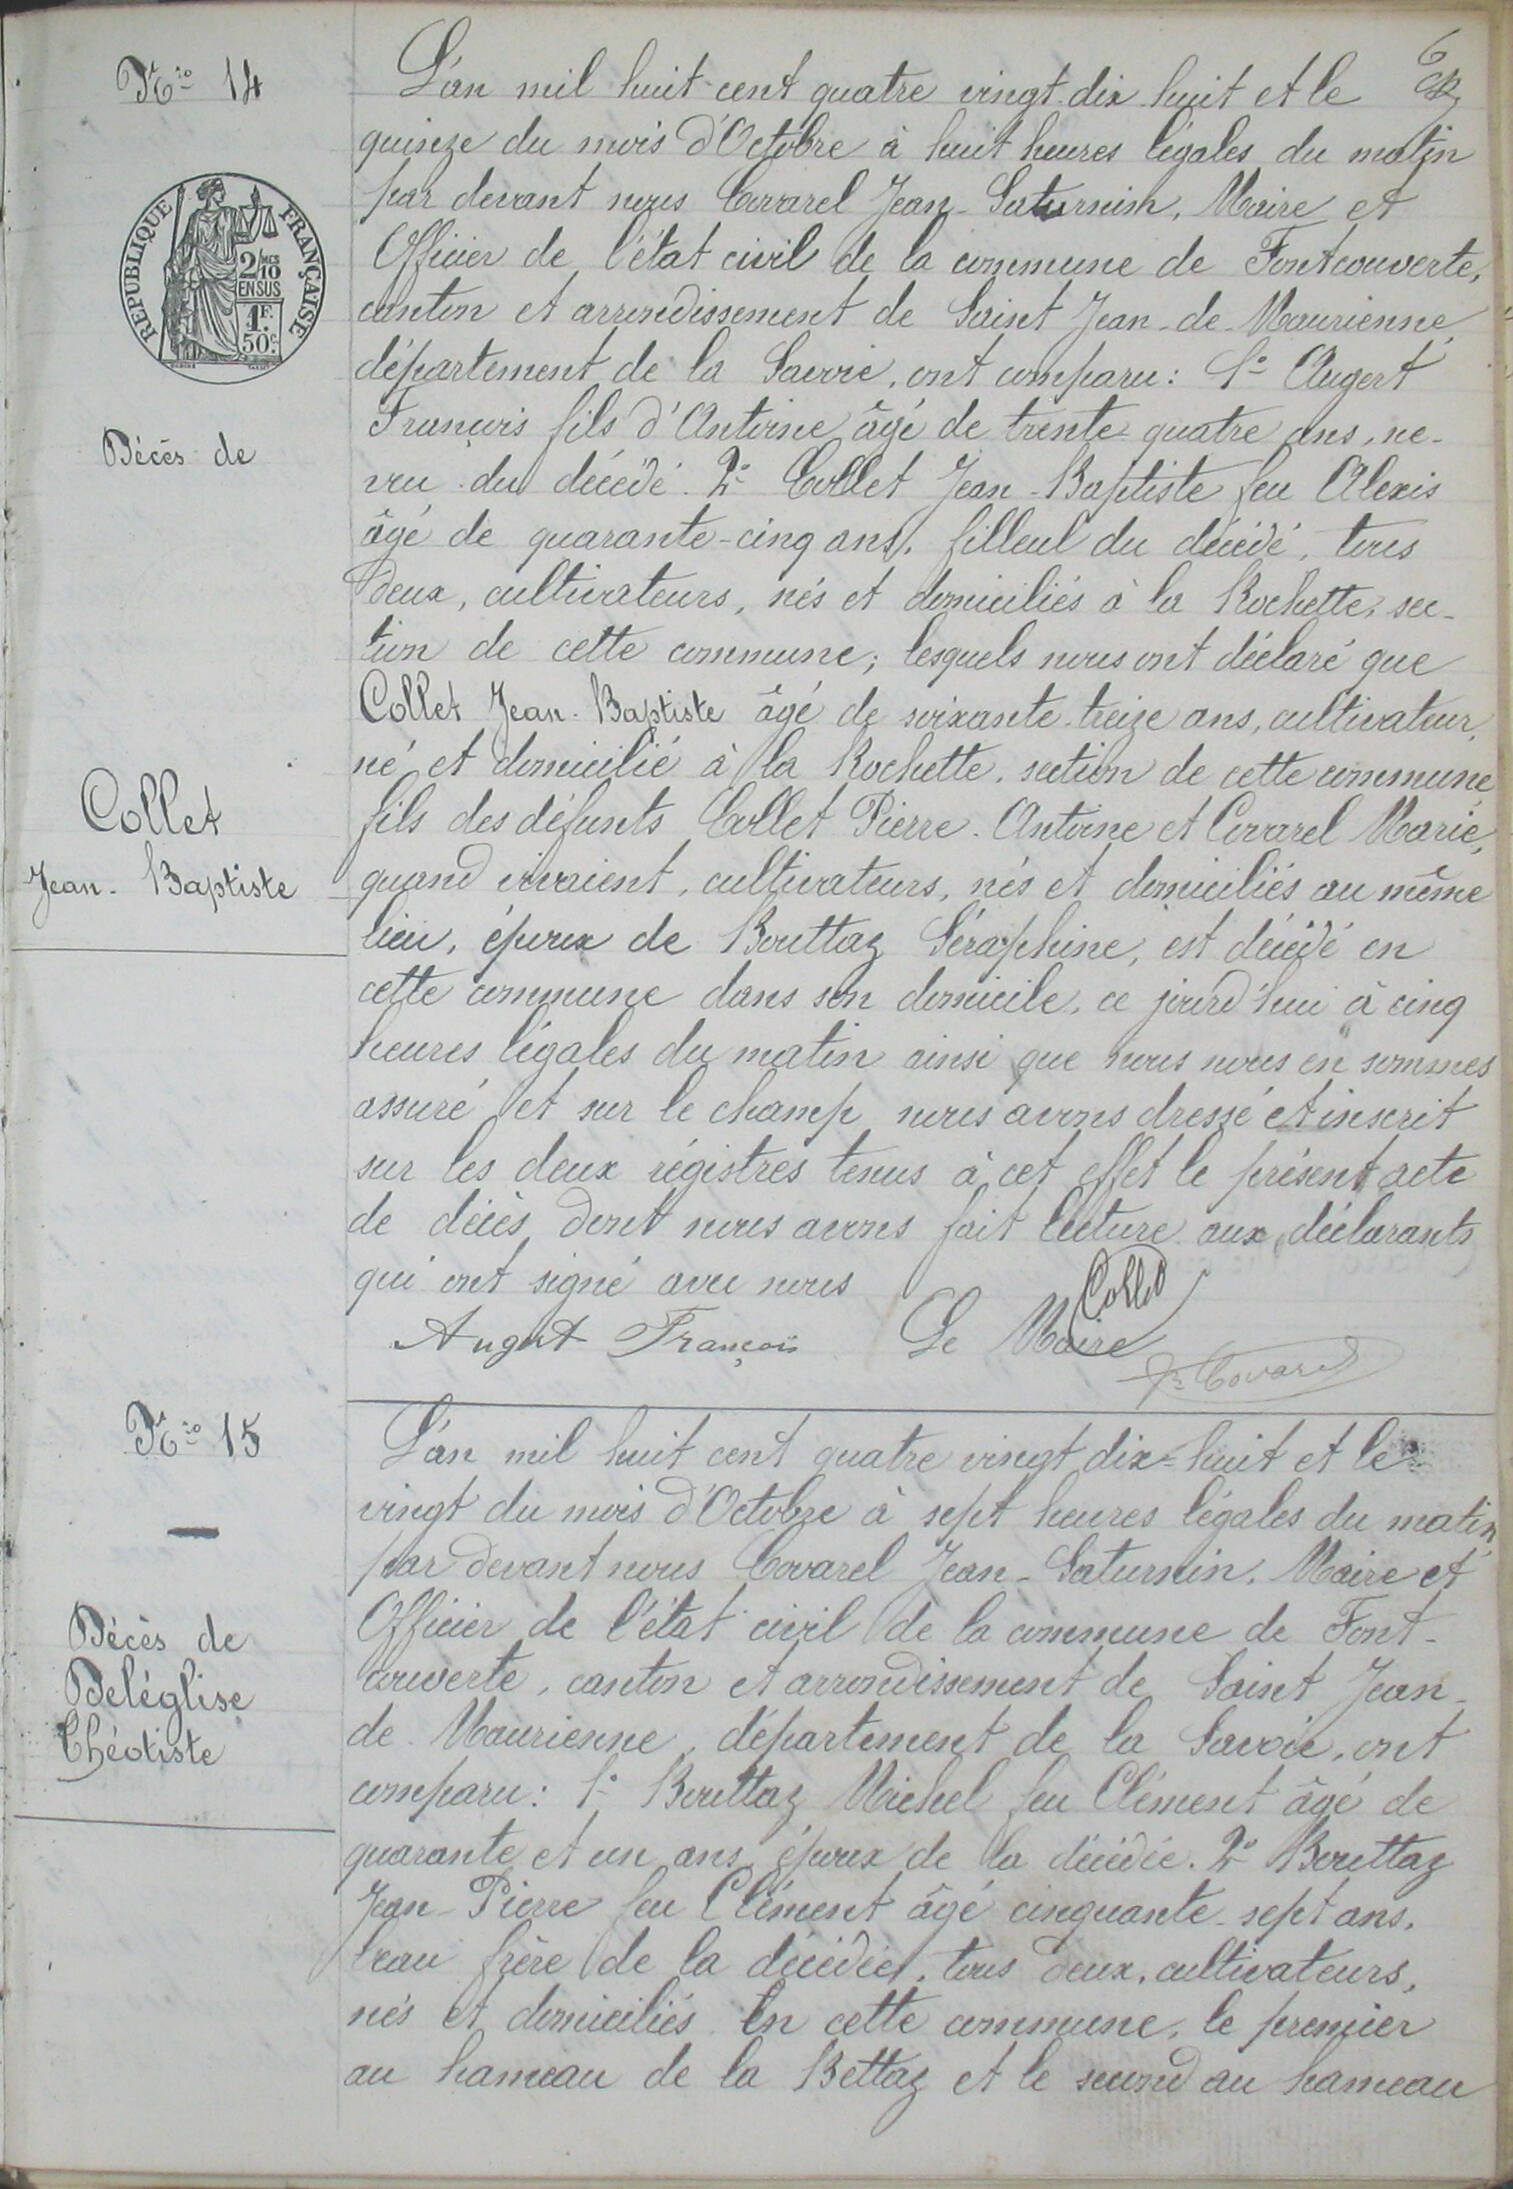 6
Nro 14
L'an mil huit cent quatre vingt dix huit et le
quinze du mois d'Octobre à huit heures légales du matin
par devant nous Covarel Jean-Saturnin, Maire et
Officier de l'état civil de la commune de Fontcouverte,
canton et arrondissement de Saint Jean-de-Maurienne,
département de la Savoie, ont comparu : 1° Augert
François fils d'Antoine âgé de trente-quatre ans, ne-
veu du décédé. 2° Collet Jean-Baptiste feu Alexis
âgé de quarante-cinq ans, filleul du décédé, tous
deux, cultivateurs, nés et domiciliés à la Rochette, sec-
tion de cette commune ; lesquels nous ont déclaré que
Collet Jean-Baptiste âgé de soixante-treize ans, cultivateur,
né et domicilié à la Rochette, section de cette commune
fils des défunts Collet Pierre-Antoine et Covarel Marie,
quand vivaient, cultivateurs, nés et domiciliés au même
lieu, époux de Bouttaz Séraphine, est décédé en
cette commune dans son domicile, ce jourd'hui à cinq
heures légales du matin ainsi que nous nous en sommes
assuré et sur le champ nous avons dressé et inscrit
sur les deux régistres tenus à cet effet le présent acte
de décès dont nous avons fait lecture aux déclarants
qui ont signé avec nous
Collet
Augert François Le Maire
Covarel
REPUBLIQUE FRANÇAISE
2/10MES
EN SUS
1F.
50c.
Décès de
Collet
Jean-Baptiste
Nro 15
Décès de
Deléglise
Théotiste
L'an mil huit cent quatre vingt dix-huit et le
vingt du mois d'Octobre à sept heures légales du matin,
par devant nous Covarel Jean-Saturnin, Maire et
Officier de l'état civil de la commune de Font-
couverte, canton et arrondissement de Saint Jean-
de-Maurienne, département de la Savoie, ont
comparu : 1° Bouttaz Michel feu Clément âgé de
quarante et un ans, époux de la décédée. 2° Bouttaz
Jean-Pierre feu Clément âgé cinquante-sept ans,
beau frère de la décédée, tous deux, cultivateurs,
nés et domiciliés en cette commune, le premier
au hameau de la Bettaz et le second au hameau